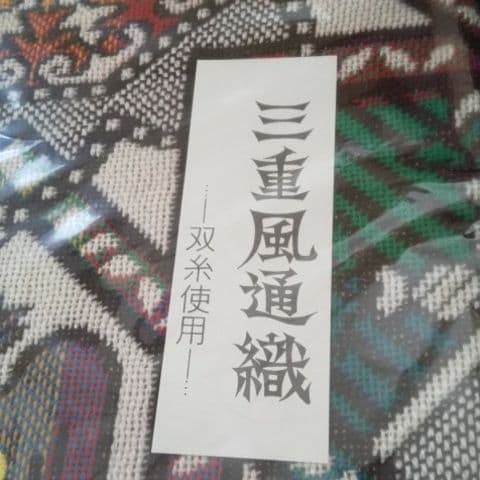 三重風通織
…—双糸使用—…